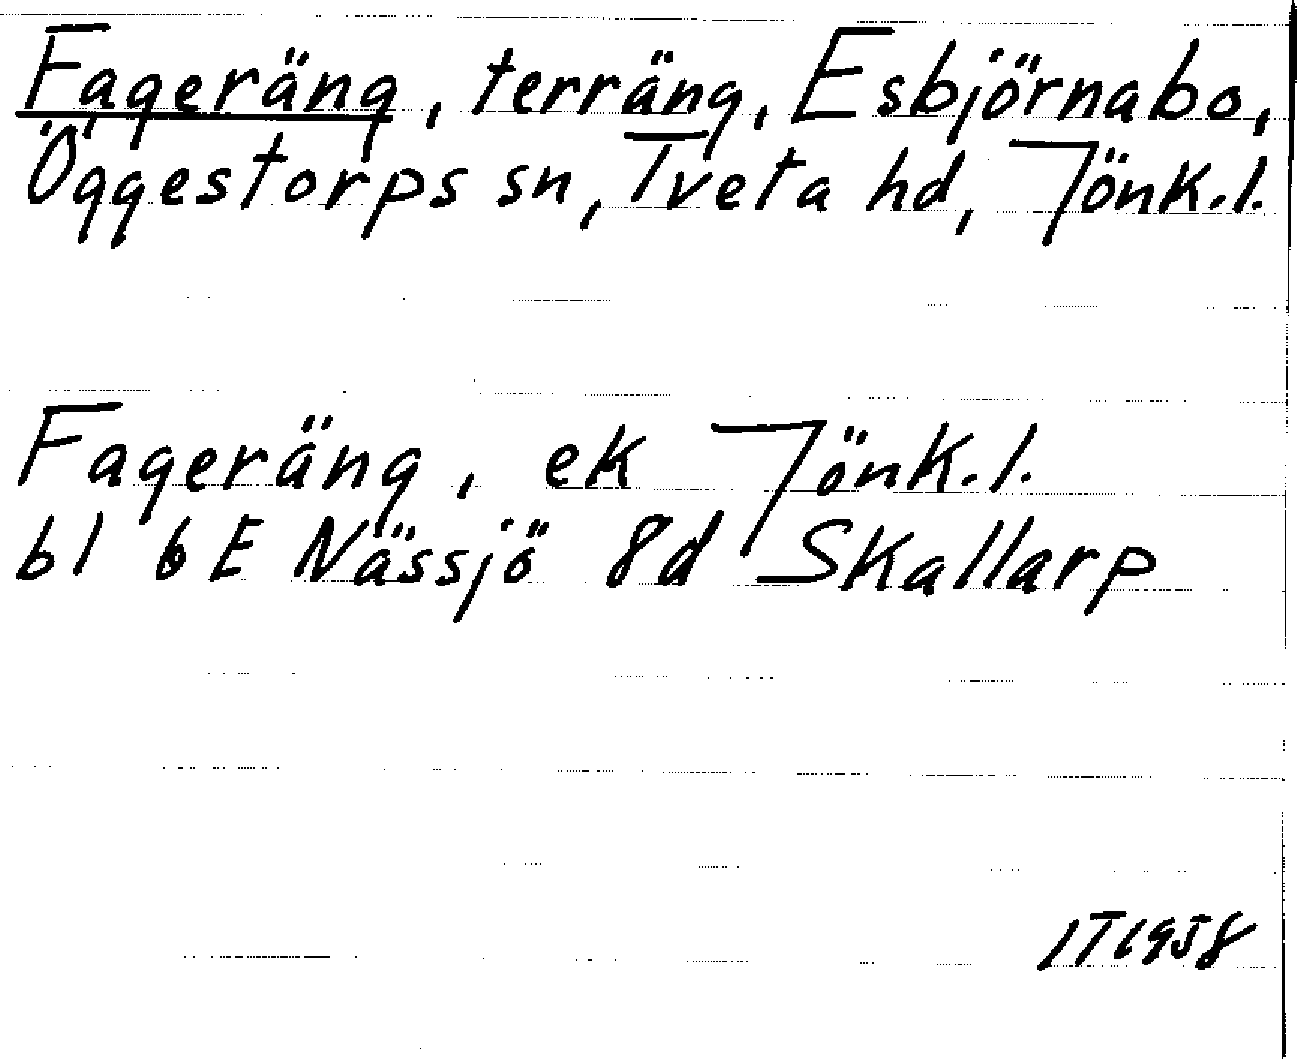 Fageräng, terräng, Esbjörnabo,
Öggestorps sn, Tveta hd, Jönk.l.
Fageräng, ek Jönk.l.
bl 6 E Nässjö 8d Skallarp
IT 1958